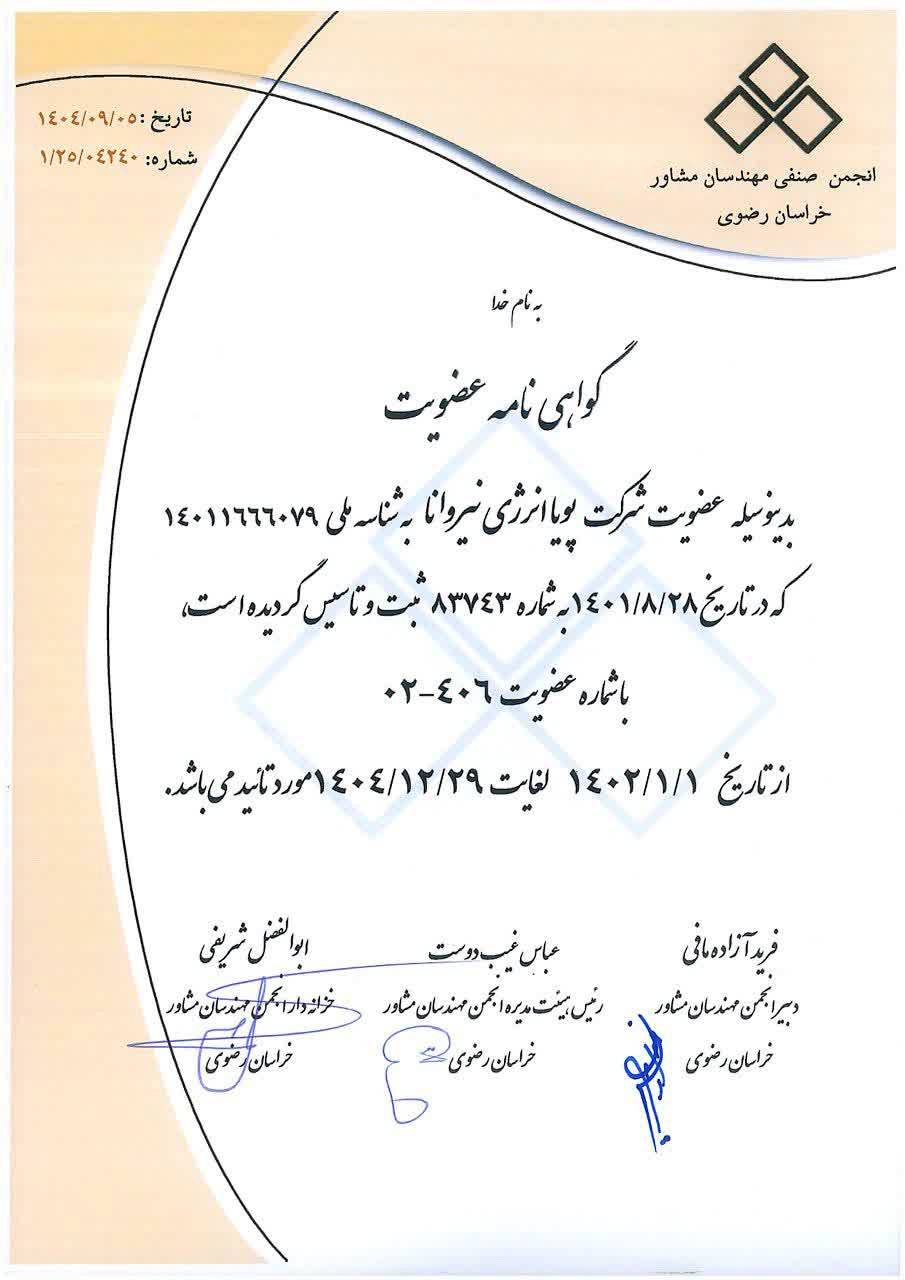 انجمن صنفی مهندسان مشاور
خراسان رضوی
تاریخ: ۱٤۰٤/۰۹/۰٥
شماره: ۱/۲٥/۰٤۲٤۰
به نام خدا
گواهی نامه عضویت
بدینوسیله عضویت شرکت پویا انرژی نیروانا به شناسه ملی ۱٤۰۱۱٦٦٦۰۷۹
که در تاریخ ۱٤۰۱/۸/۲۸ به شماره ۸۳۷٤۳ ثبت و تاسیس گردیده است،
با شماره عضویت ٤۰٦-۰۲
از تاریخ ۱٤۰۲/۱/۱ لغایت ۱٤۰٤/۱۲/۲۹ مورد تائید می باشد.
فرید آزاده مافی
دبیر انجمن مهندسان مشاور
خراسان رضوی
عباس غیب دوست
رئیس هیئت مدیره انجمن مهندسان مشاور
خراسان رضوی
ابوالفضل شریفی
خزانه دار انجمن مهندسان مشاور
خراسان رضوی